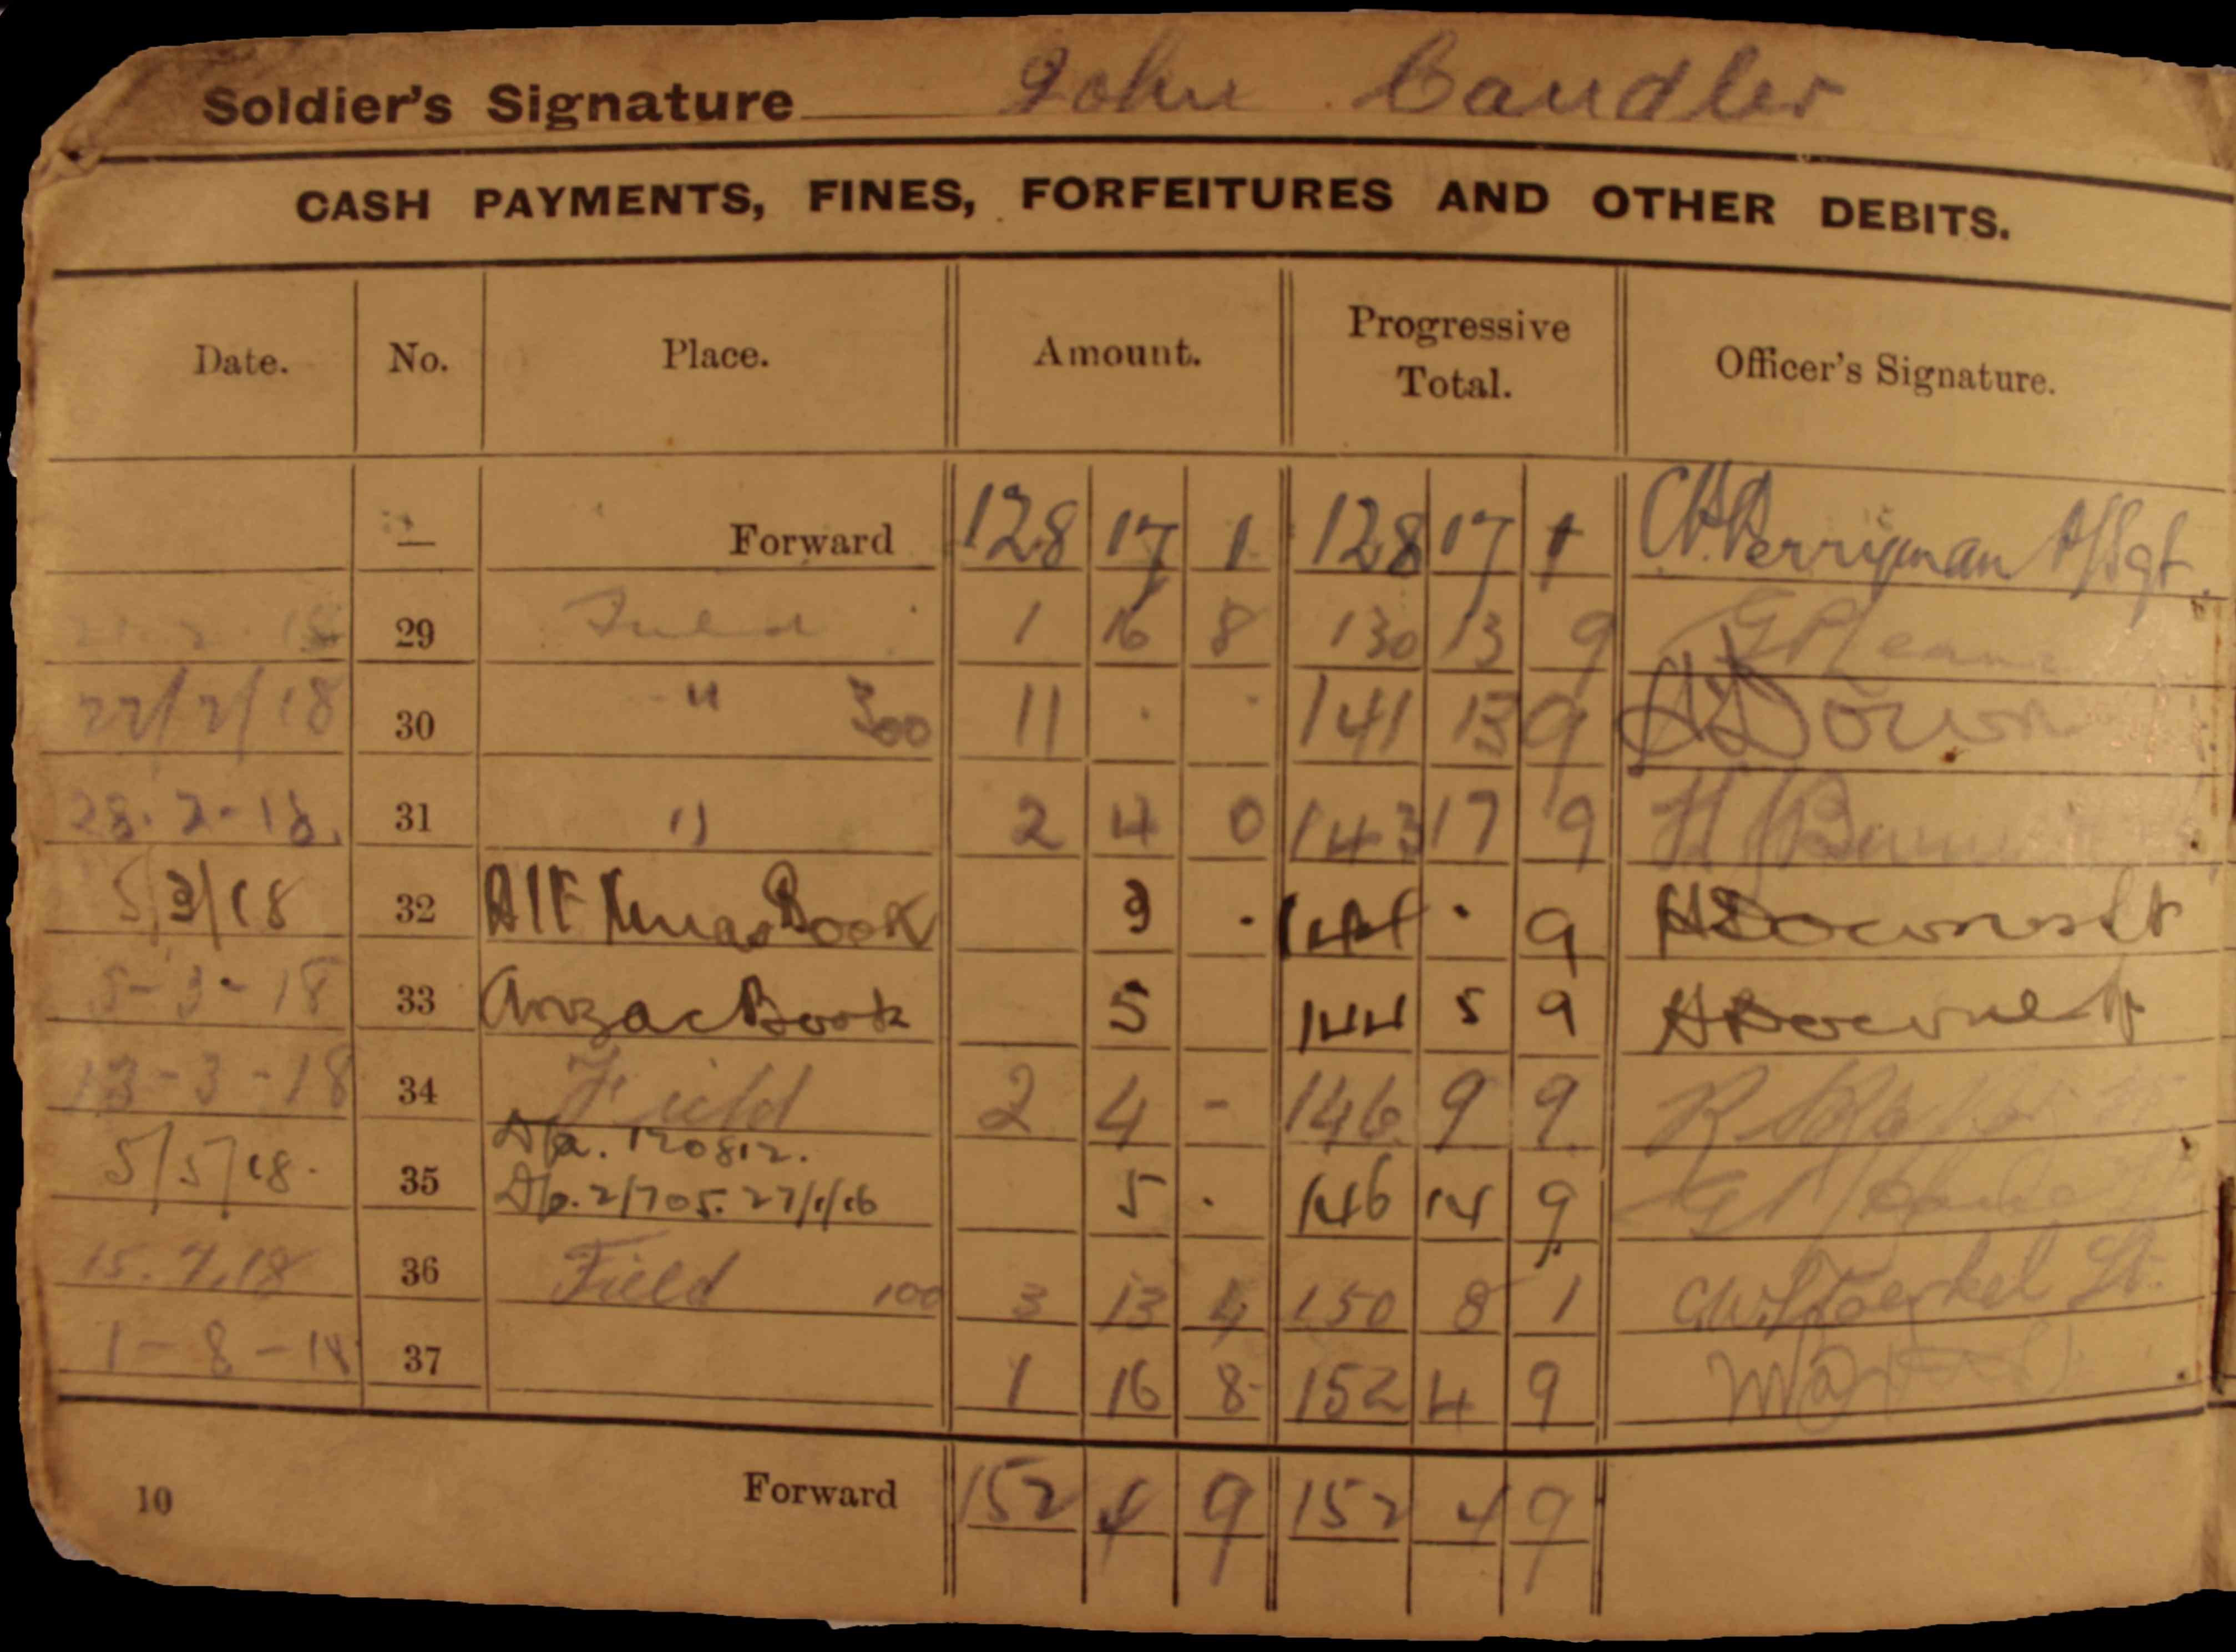 Soldier's Signature John Candler
CASH PAYMENTS, FINES, FORFEITURES AND OTHER DEBITS.
Date. No. Place. Amount. Progressive Total. Officer's Signature.
— Forward 128 17 1 128 17 1 Perryman
29 Field 1 16 8 130 13 9
22/2/18 30 " 300 11 . . 141 13 9
28.2.18. 31 " 2 4 0 143 17 9
5/3/18 32 AIF Xmas Book 3 . 144 . 9
5-3-18 33 Anzac Book 5 144 5 9
13-3-18 34 Field 2 4 - 146 9 9
5/5/18. 35 D/a. 120812. D/p. 2/705. 27/1/16 5 . 146 14 9
15.7.18 36 Field 100 3 13 4 150 8 1
1-8-18 37 1 16 8 152 4 9
10 Forward 152 4 9 152 4 9